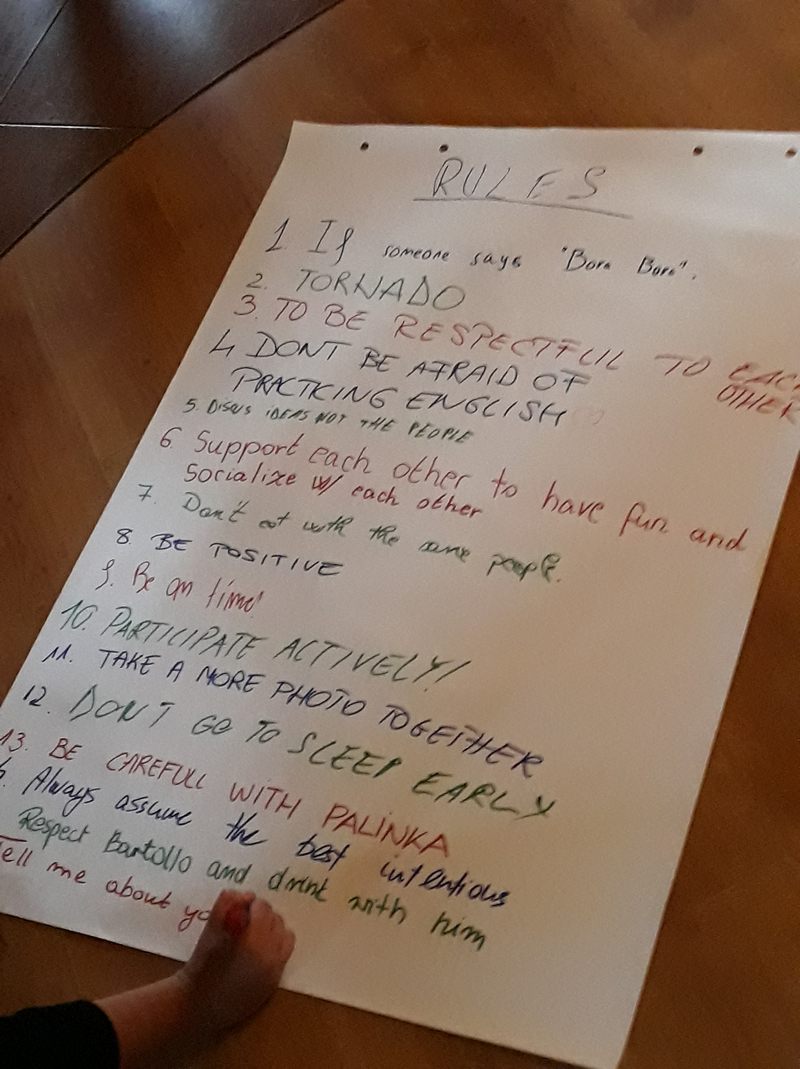 RULES
1 If someone says "Bora Bora".
2. TORNADO
3. TO BE RESPECTFUL TO EACH
OTHER
4 DONT BE AFRAID OF
PRACTICING ENGLISH
5. DISCUS IDEAS NOT THE PEOPLE
6. Support each other to have fun and
Socialize w/ each other
7. Don't eat with the same people.
8. BE POSITIVE
9. Be on time!
10. PARTICIPATE ACTIVELY!
11. TAKE A MORE PHOTO TOGETHER
12. DON'T GO TO SLEEP EARLY
13. BE CAREFULL WITH PALINKA
Always assume the best intentions
Respect Bartollo and drink with him
Tell me about